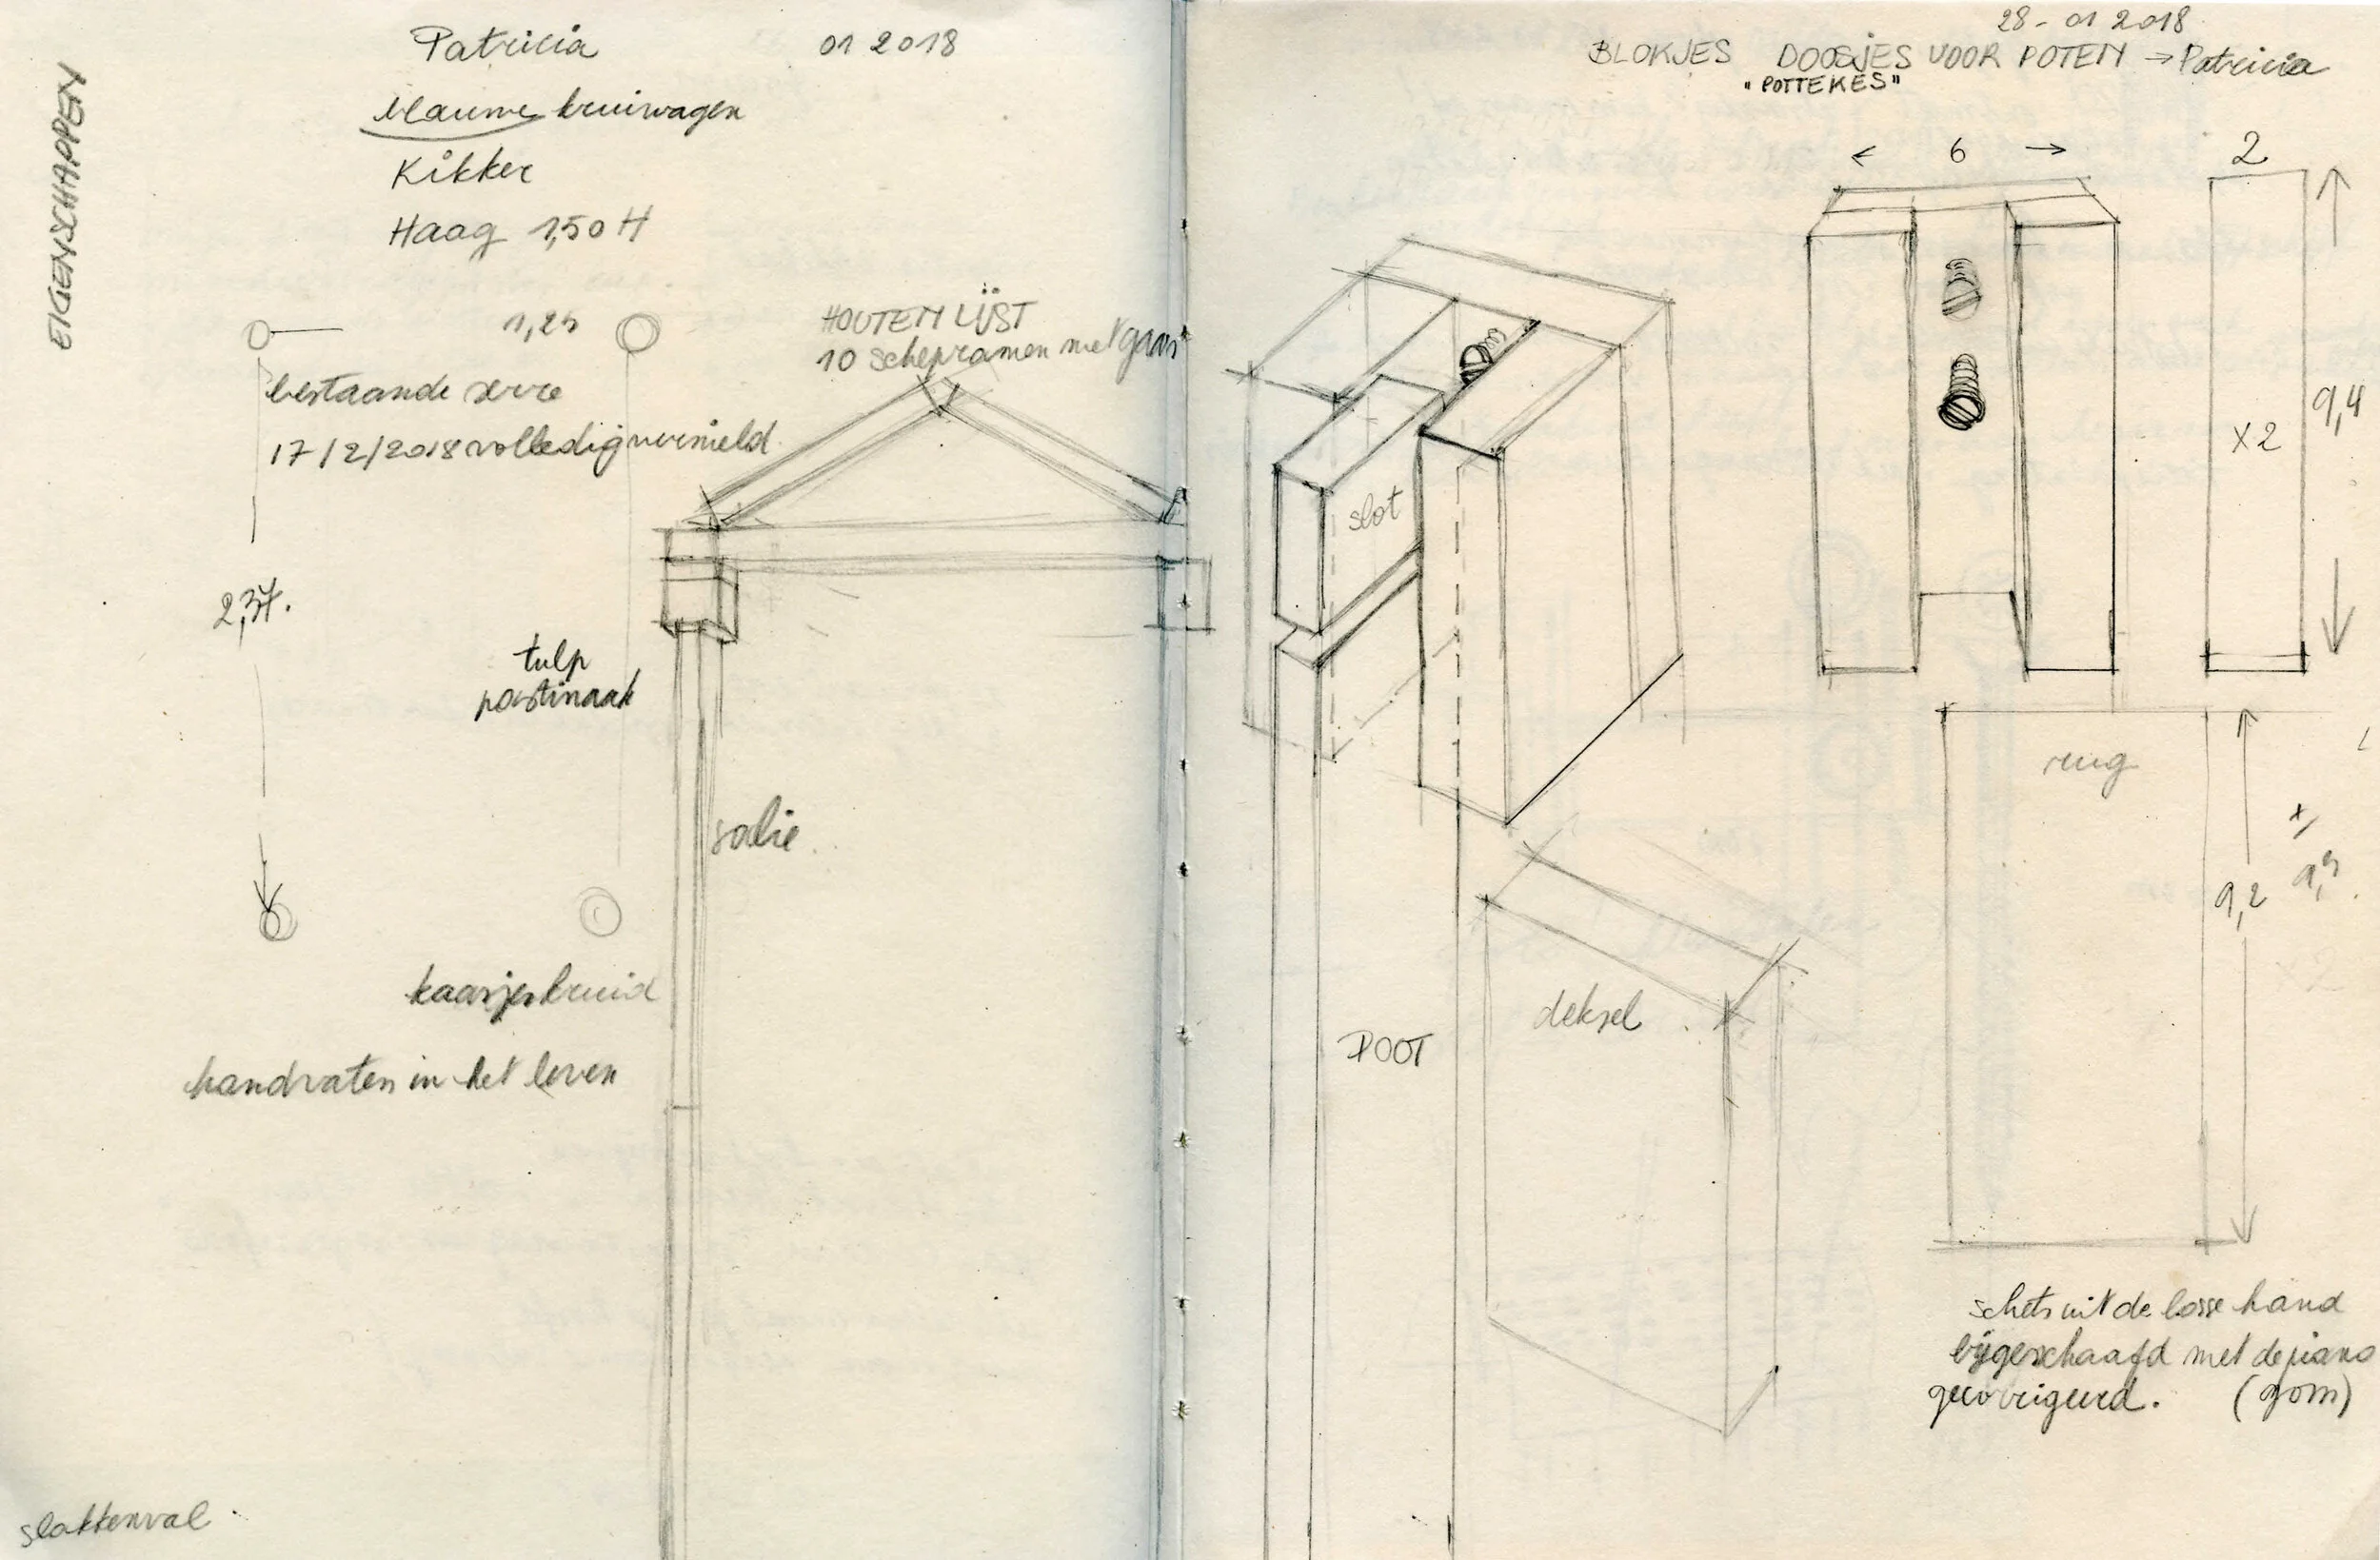 EIGENSCHAPPEN
Patricia 01 2018
blauwe kruiwagen
Kikker
Haag 1,50 H
1,25
HOUTEN LIJST
10 schepramen met gaas
bestaande serre
17/2/2018 volledig vernield
2,37.
tulp
pastinaak
salie
kaasjeskruid
handvaten in het leven
slakkenval
28-01 2018
BLOKJES DOOSJES VOOR POTEN → Patricia
"POTTEKES"
← 6 →
2
slot
X2
9,4
rug
9,2
deksel
POOT
schets uit de losse hand
bijgeschaafd met de piano
gecorrigeerd. (gom)